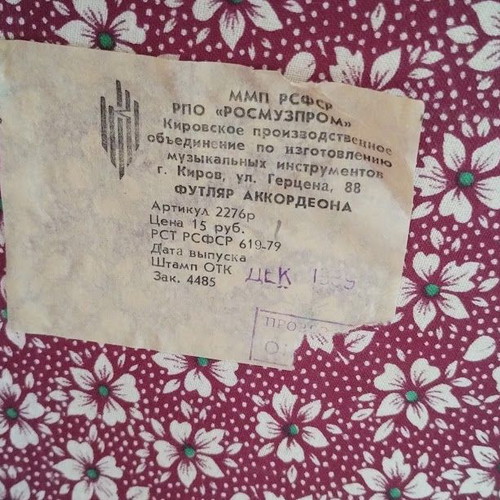 ММП РСФСР
РПО «РОСМУЗПРОМ»
Кировское производственное
объединение по изготовлению
музыкальных инструментов
г. Киров, ул. Герцена, 88
ФУТЛЯР АККОРДЕОНА
Артикул 2276р
Цена 15 руб.
РСТ РСФСР 619-79
Дата выпуска
Штамп ОТК ДЕК
Зак. 4485